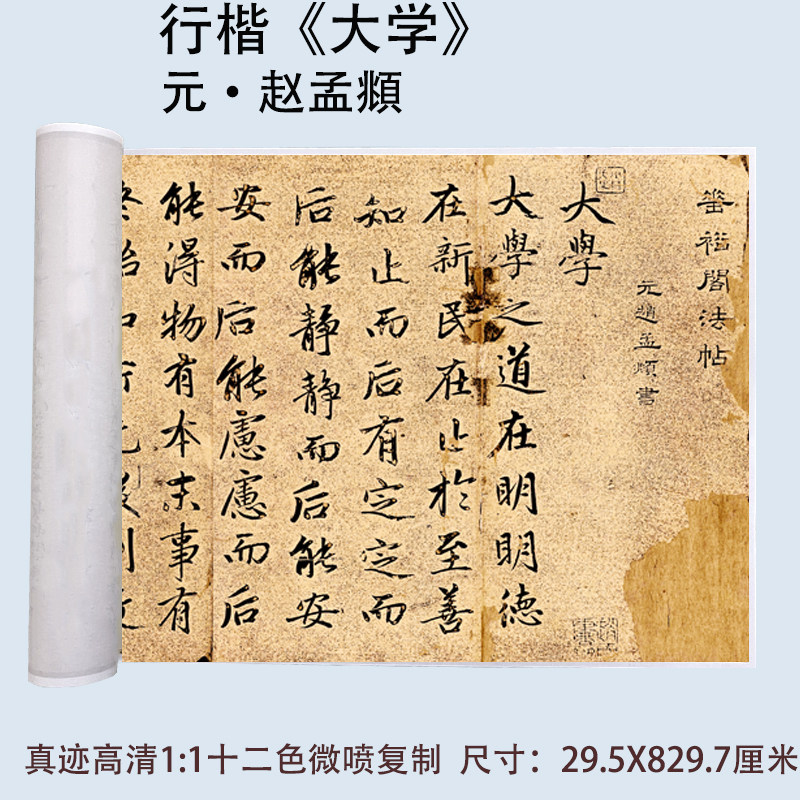 行楷《大学》
元·赵孟頫
閣法帖
元趙孟頫書
大學
大學之道在明明德
在新民在止於至善
知止而后有定定而
后能静静而后能安
安而后能慮慮而后
能得物有本末事有
終始知所先後則近
真迹高清1:1十二色微喷复制 尺寸：29.5X829.7厘米